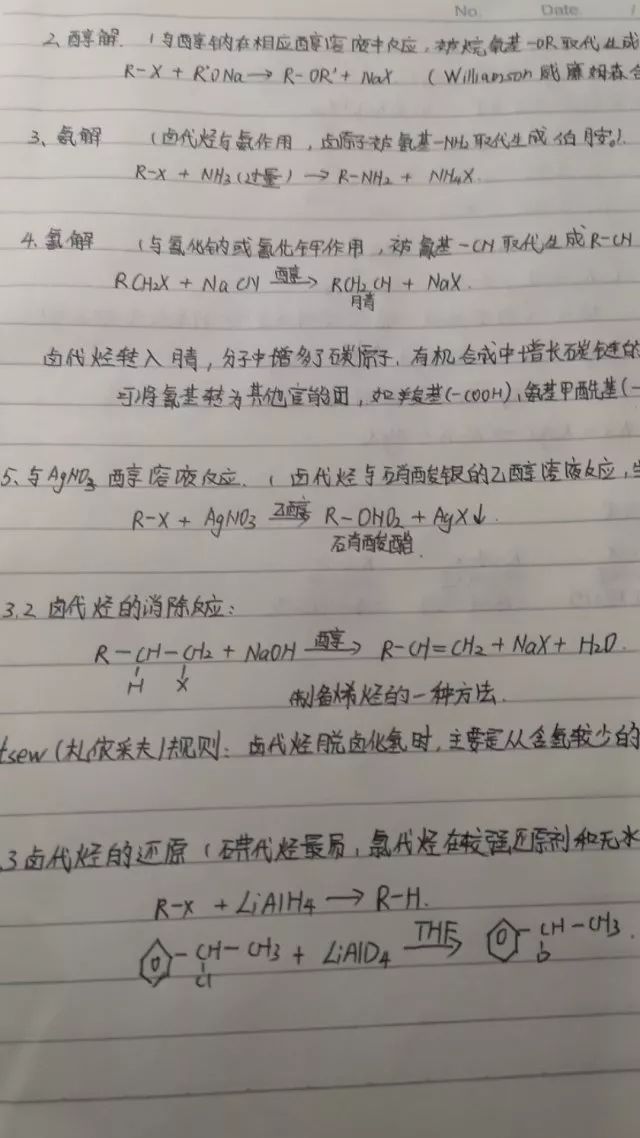 No. Date /
2、醇解. (与醇钠在相应醇溶液中反应,被烷氧基-OR取代生成
R-X + R'ONa → R-OR' + NaX (Williamson 威廉姆森合
3、氨解 (卤代烃与氨作用,卤原子被氨基-NH2取代生成伯胺。).
R-X + NH3(过量) → R-NH2 + NH4X.
4、氰解 (与氰化钠或氰化钾作用,被氰基-CN取代生成R-CN
RCH2X + NaCN 醇→ RCH2CN + NaX.
腈
卤代烃转入腈,分子中增多了碳原子,有机合成中增长碳链的
可将氰基转为其他官能团,如羧基(-COOH)、氨基甲酰基(-
5、与AgNO3醇溶液反应. (卤代烃与硝酸银的乙醇溶液反应,
R-X + AgNO3 乙醇→ R-ONO2 + AgX↓.
硝酸酯.
3.2 卤代烃的消除反应:
R-CH-CH2 + NaOH 醇→ R-CH=CH2 + NaX + H2O.
H X
制备烯烃的一种方法.
tsew(札依采夫)规则:卤代烃脱卤化氢时,主要是从含氢较少的
.3卤代烃的还原(碘代烃最易,氯代烃在较强还原剂和无水
R-X + LiAlH4 → R-H.
-CH-CH3 + LiAlD4 THF→ -CH-CH3.
Cl D